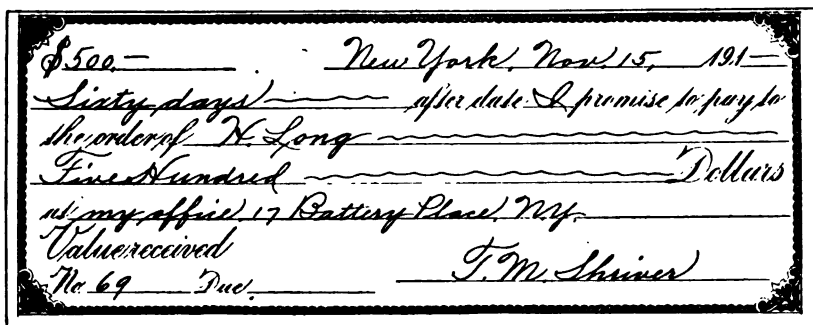 $500.— New York, Nov. 15, 191—
Sixty days after date I promise to pay to
the order of H. Long
Five Hundred Dollars
at my office, 17 Battery Place, N.Y.
Value received
No. 69 Due T. M. Shriver